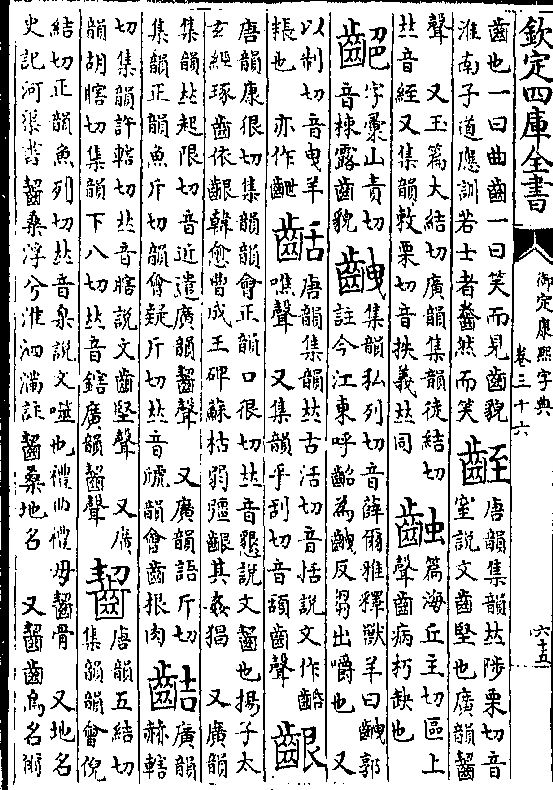 欽定四庫全書
御定康熙字典
卷三十六
六十五
齒也一曰曲齒一曰笑而見齒貌
淮南子道應訓若士者齤然而笑
䶡唐韻集韻𠀤陟栗切音
窒說文齒堅也廣韻齧
聲　又玉篇大結切廣韻集韻徒結切
𠀤音經又集韻敕栗切音抶義𠀤同
篇海丘主切區上
聲齒病朽缺也
齝字彙山責切
音棟露齒貌
齛集韻私列切音薛爾雅釋獸羊曰齛郭
註今江東呼齝為齛反芻出嚼也　又
以制切音曳羊
粻也　亦作䶔
唐韻集韻𠀤古活切音括說文作𪙽
噍聲　又集韻乎刮切音頢齒聲
齦
唐韻康很切集韻韻會正韻口很切𠀤音懇說文齧也揚子太
玄經琢齒依齦韓愈曹成王碑蘇枯弱彊齦其姦猖　又廣韻
集韻𠀤起限切音近遣廣韻齧聲　又廣韻語斤切
集韻正韻魚斤切韻會疑斤切𠀤音虒韻會齒根肉
廣韻
赫轄
切集韻許轄切𠀤音瞎說文齒堅聲　又廣
韻胡瞎切集韻下八切𠀤音鎋廣韻齧聲
齧唐韻五結切
集韻韻會倪
結切正韻魚列切𠀤音臬說文噬也禮曲禮毋齧骨　又地名
史記河渠書齧桑浮兮淮泗滿註齧桑地名　又齧齒鳥名爾